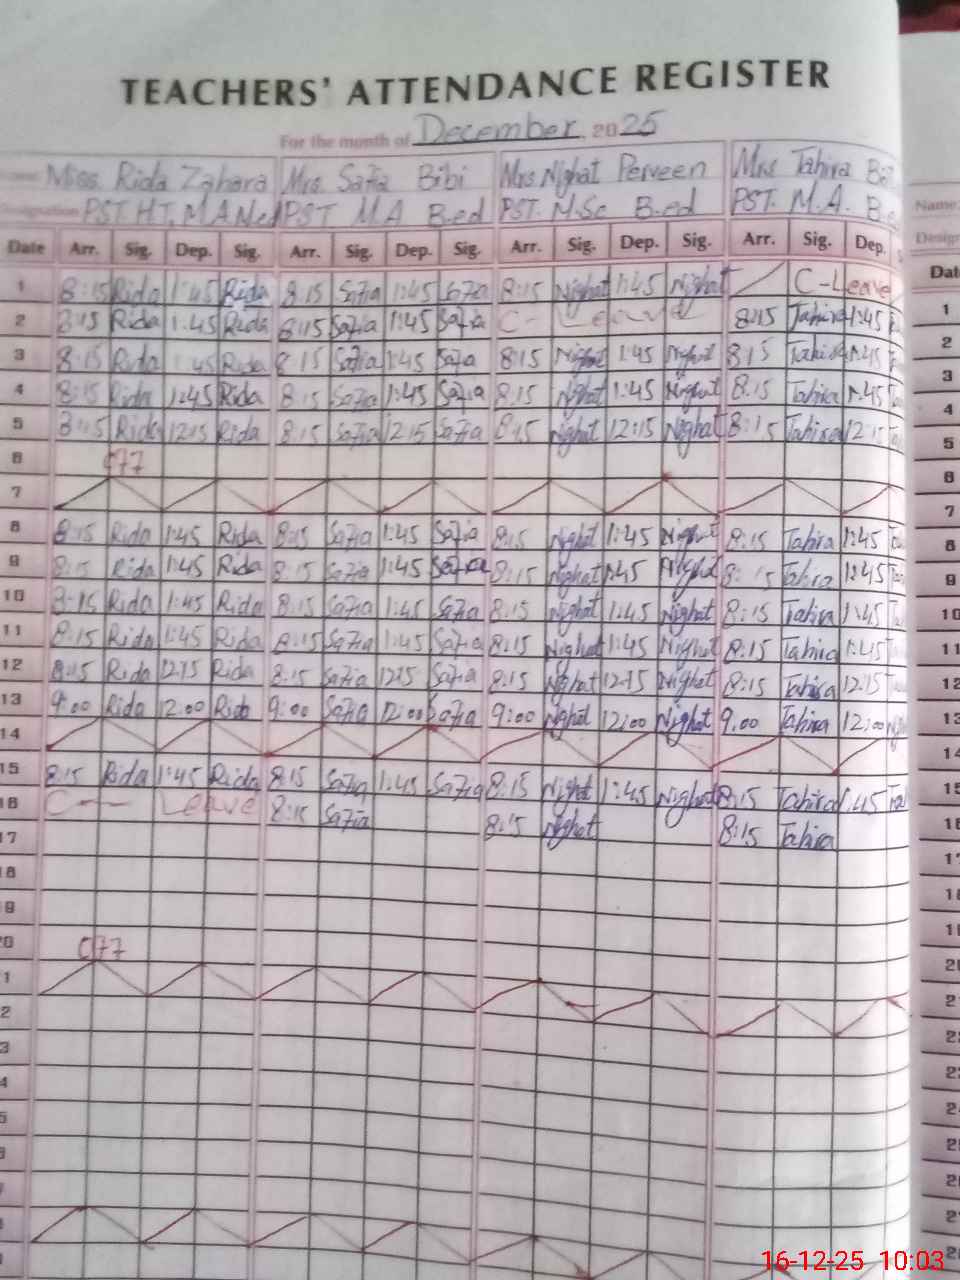 TEACHERS' ATTENDANCE REGISTER
For the month of December, 2025
Miss. Rida Zahara Mrs. Safia Bibi Mrs Nighat Perveen Mrs Tahira Bi
Designation PST. HT. M.A PST M.A B.ed PST. M.Sc B.ed PST. M.A. B.e
Name
Date Arr. Sig. Dep. Sig. Arr. Sig. Dep. Sig. Arr. Sig. Dep. Sig. Arr. Sig. Dep.
1 8:15 Rida 1:45 Rida 8:15 Safia 1:45 Safia 8:15 Nighat 1:45 Nighat C-Leave
2 8:15 Rida 1:45 Rida 8:15 Safia 1:45 Safia C- Leave 8:15 Tahira 1:45
3 8:15 Rida 1:45 Rida 8:15 Safia 1:45 Safia 8:15 Nighat 1:45 Nighat 8:15 Tahira 1:45
4 8:15 Rida 1:45 Rida 8:15 Safia 1:45 Safia 8:15 Nighat 1:45 Nighat 8:15 Tahira 1:45
5 8:15 Rida 12:15 Rida 8:15 Safia 12:15 Safia 8:15 Nighat 12:15 Nighat 8:15 Tahira 12:15
6
7
8 8:15 Rida 1:45 Rida 8:15 Safia 1:45 Safia 8:15 Nighat 1:45 Nighat 8:15 Tahira 1:45
9 8:15 Rida 1:45 Rida 8:15 Safia 1:45 Safia 8:15 Nighat 1:45 Nighat 8:15 Tahira 1:45
10 8:15 Rida 1:45 Rida 8:15 Safia 1:45 Safia 8:15 Nighat 1:45 Nighat 8:15 Tahira 1:45
11 8:15 Rida 1:45 Rida 8:15 Safia 1:45 Safia 8:15 Nighat 1:45 Nighat 8:15 Tahira 1:45
12 8:15 Rida 12:15 Rida 8:15 Safia 12:15 Safia 8:15 Nighat 12:15 Nighat 8:15 Tahira 12:15
13 9:00 Rida 12:00 Rida 9:00 Safia 12:00 Safia 9:00 Nighat 12:00 Nighat 9.00 Tahira 12:00
14
15 8:15 Rida 1:45 Rida 8:15 Safia 1:45 Safia 8:15 Nighat 1:45 Nighat 8:15 Tahira 1:45
16 C- Leave 8:15 Safia 8:15 Nighat 8:15 Tahira
17
18
19
16-12-25 10:03